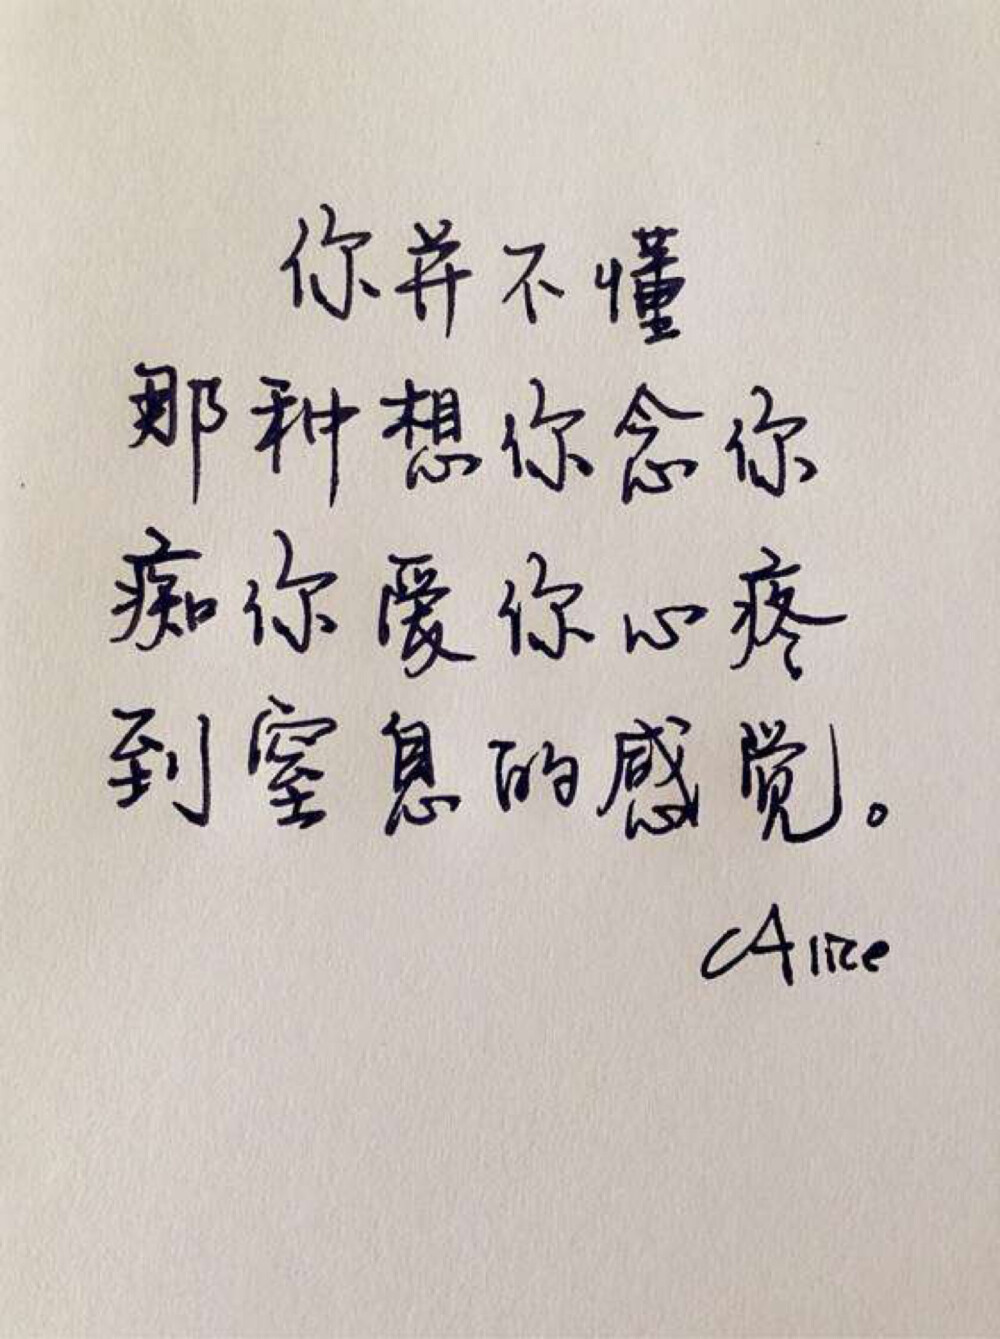 你并不懂
那种想你念你
痴你爱你心疼
到窒息的感觉。
Alice